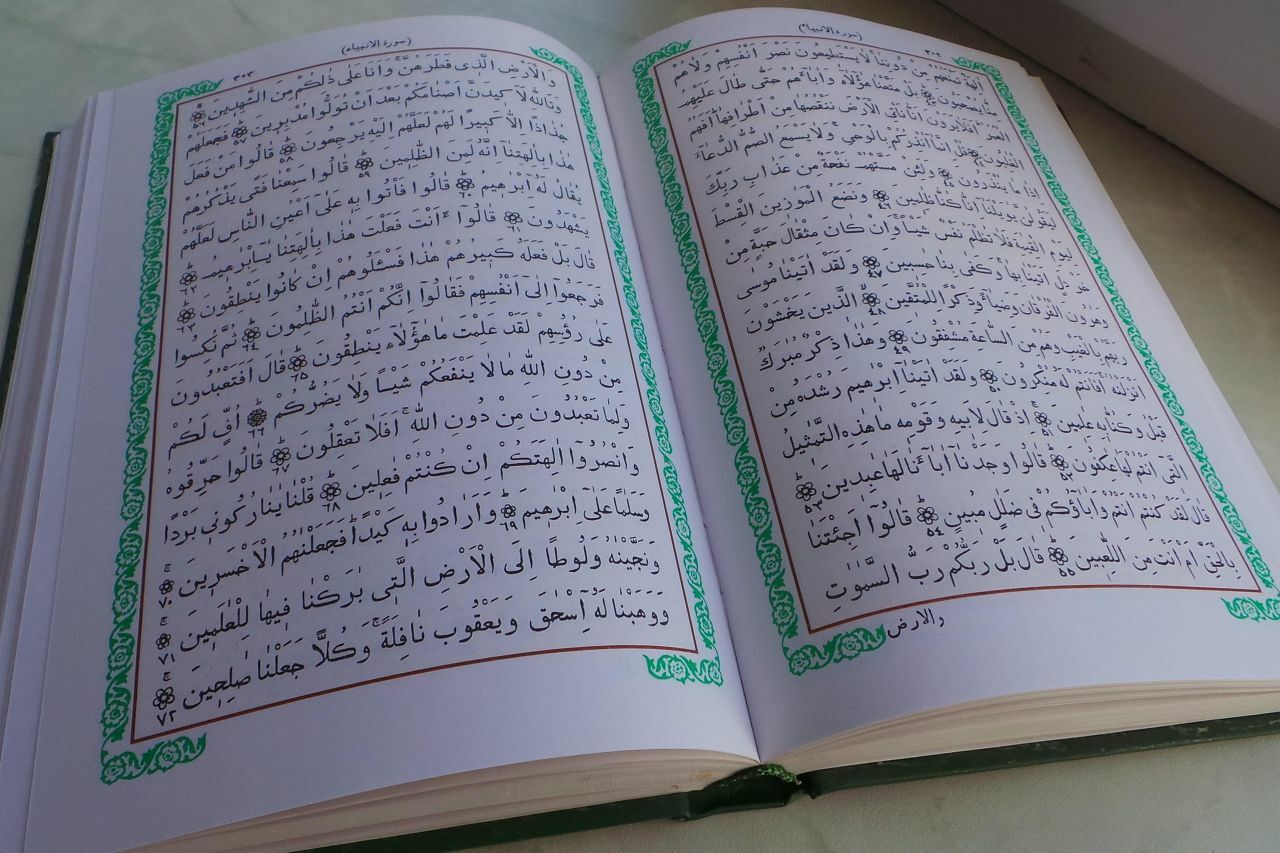 (سورة الانبياء)
٣٠٢
اٰلِهَةٌ تَمْنَعُهُمْ مِنْ دُونِنَاۜ لَا يَسْتَطٖيعُونَ نَصْرَ اَنْفُسِهِمْ وَلَا هُمْ
مِنَّا يُصْحَبُونَ ٤٣ بَلْ مَتَّعْنَا هٰٓؤُلَٓاءِ وَاٰبَٓاءَهُمْ حَتّٰى طَالَ عَلَيْهِمُ
الْعُمُرُۜ اَفَلَا يَرَوْنَ اَنَّا نَأْتِى الْاَرْضَ نَنْقُصُهَا مِنْ اَطْرَافِهَاۜ اَفَهُمُ
الْغَالِبُونَ ٤٤ قُلْ اِنَّمَٓا اُنْذِرُكُمْ بِالْوَحْىِۘ وَلَا يَسْمَعُ الصُّمُّ الدُّعَٓاءَ
اِذَا مَا يُنْذَرُونَ ٤٥ وَلَئِنْ مَسَّتْهُمْ نَفْحَةٌ مِنْ عَذَابِ رَبِّكَ
لَيَقُولُنَّ يَا وَيْلَنَٓا اِنَّا كُنَّا ظَالِمٖينَ ٤٦ وَنَضَعُ الْمَوَازٖينَ الْقِسْطَ
لِيَوْمِ الْقِيٰمَةِ فَلَا تُظْلَمُ نَفْسٌ شَيْـًٔاۜ وَاِنْ كَانَ مِثْقَالَ حَبَّةٍ مِنْ
خَرْدَلٍ اَتَيْنَا بِهَاۜ وَكَفٰى بِنَا حَاسِبٖينَ ٤٧ وَلَقَدْ اٰتَيْنَا مُوسٰى
وَهٰرُونَ الْفُرْقَانَ وَضِيَٓاءً وَذِكْرًا لِلْمُتَّقٖينَ ٤٨ اَلَّذٖينَ يَخْشَوْنَ
رَبَّهُمْ بِالْغَيْبِ وَهُمْ مِنَ السَّاعَةِ مُشْفِقُونَ ٤٩ وَهٰذَا ذِكْرٌ مُبَارَكٌ
اَنْزَلْنَاهُۜ اَفَاَنْتُمْ لَهُ مُنْكِرُونَ ٥٠ وَلَقَدْ اٰتَيْنَٓا اِبْرٰهٖيمَ رُشْدَهُ مِنْ
قَبْلُ وَكُنَّا بِهٖ عَالِمٖينَ ٥١ اِذْ قَالَ لِاَبٖيهِ وَقَوْمِهٖ مَا هٰذِهِ التَّمَاثٖيلُ
الَّتٖٓى اَنْتُمْ لَهَا عَاكِفُونَ ٥٢ قَالُوا وَجَدْنَٓا اٰبَٓاءَنَا لَهَا عَابِدٖينَ ٥٣
قَالَ لَقَدْ كُنْتُمْ اَنْتُمْ وَاٰبَٓاؤُ۬كُمْ فٖى ضَلَالٍ مُبٖينٍ ٥٤ قَالُٓوا اَجِئْتَنَا
بِالْحَقِّ اَمْ اَنْتَ مِنَ اللَّاعِبٖينَ ٥٥ قَالَ بَلْ رَبُّكُمْ رَبُّ السَّمٰوَاتِ
والارض
(سورة الانبياء)
٣٠٣
وَالْاَرْضِ الَّذٖى فَطَرَهُنَّۘ وَاَنَا عَلٰى ذٰلِكُمْ مِنَ الشَّاهِدٖينَ ٥٦
وَتَاللّٰهِ لَاَكٖيدَنَّ اَصْنَامَكُمْ بَعْدَ اَنْ تُوَلُّوا مُدْبِرٖينَ ٥٧ فَجَعَلَهُمْ
جُذَاذًا اِلَّا كَبٖيرًا لَهُمْ لَعَلَّهُمْ اِلَيْهِ يَرْجِعُونَ ٥٨ قَالُوا مَنْ فَعَلَ
هٰذَا بِاٰلِهَتِنَٓا اِنَّهُ لَمِنَ الظَّالِمٖينَ ٥٩ قَالُوا سَمِعْنَا فَتًى يَذْكُرُهُمْ
يُقَالُ لَهُٓ اِبْرٰهٖيمُ ٦٠ قَالُوا فَأْتُوا بِهٖ عَلٰٓى اَعْيُنِ النَّاسِ لَعَلَّهُمْ
يَشْهَدُونَ ٦١ قَالُٓوا ءَاَنْتَ فَعَلْتَ هٰذَا بِاٰلِهَتِنَا يَٓا اِبْرٰهٖيمُ ٦٢
قَالَ بَلْ فَعَلَهُۗ كَبٖيرُهُمْ هٰذَا فَسْـَٔلُوهُمْ اِنْ كَانُوا يَنْطِقُونَ ٦٣
فَرَجَعُٓوا اِلٰٓى اَنْفُسِهِمْ فَقَالُٓوا اِنَّكُمْ اَنْتُمُ الظَّالِمُونَ ٦٤ ثُمَّ نُكِسُوا
عَلٰى رُؤُ۫سِهِمْۚ لَقَدْ عَلِمْتَ مَا هٰٓؤُلَٓاءِ يَنْطِقُونَ ٦٥ قَالَ اَفَتَعْبُدُونَ
مِنْ دُونِ اللّٰهِ مَا لَا يَنْفَعُكُمْ شَيْـًٔا وَلَا يَضُرُّكُمْ ٦٦ اُفٍّ لَكُمْ
وَلِمَا تَعْبُدُونَ مِنْ دُونِ اللّٰهِۜ اَفَلَا تَعْقِلُونَ ٦٧ قَالُوا حَرِّقُوهُ
وَانْصُرُٓوا اٰلِهَتَكُمْ اِنْ كُنْتُمْ فَاعِلٖينَ ٦٨ قُلْنَا يَا نَارُ كُونٖى بَرْدًا
وَسَلَامًا عَلٰٓى اِبْرٰهٖيمَ ٦٩ وَاَرَادُوا بِهٖ كَيْدًا فَجَعَلْنَاهُمُ الْاَخْسَرٖينَ ٧٠
وَنَجَّيْنَاهُ وَلُوطًا اِلَى الْاَرْضِ الَّتٖى بَارَكْنَا فٖيهَا لِلْعَالَمٖينَ ٧١
وَوَهَبْنَا لَهُٓ اِسْحٰقَ وَيَعْقُوبَ نَافِلَةًۜ وَكُلًّا جَعَلْنَا صَالِحٖينَ ٧٢